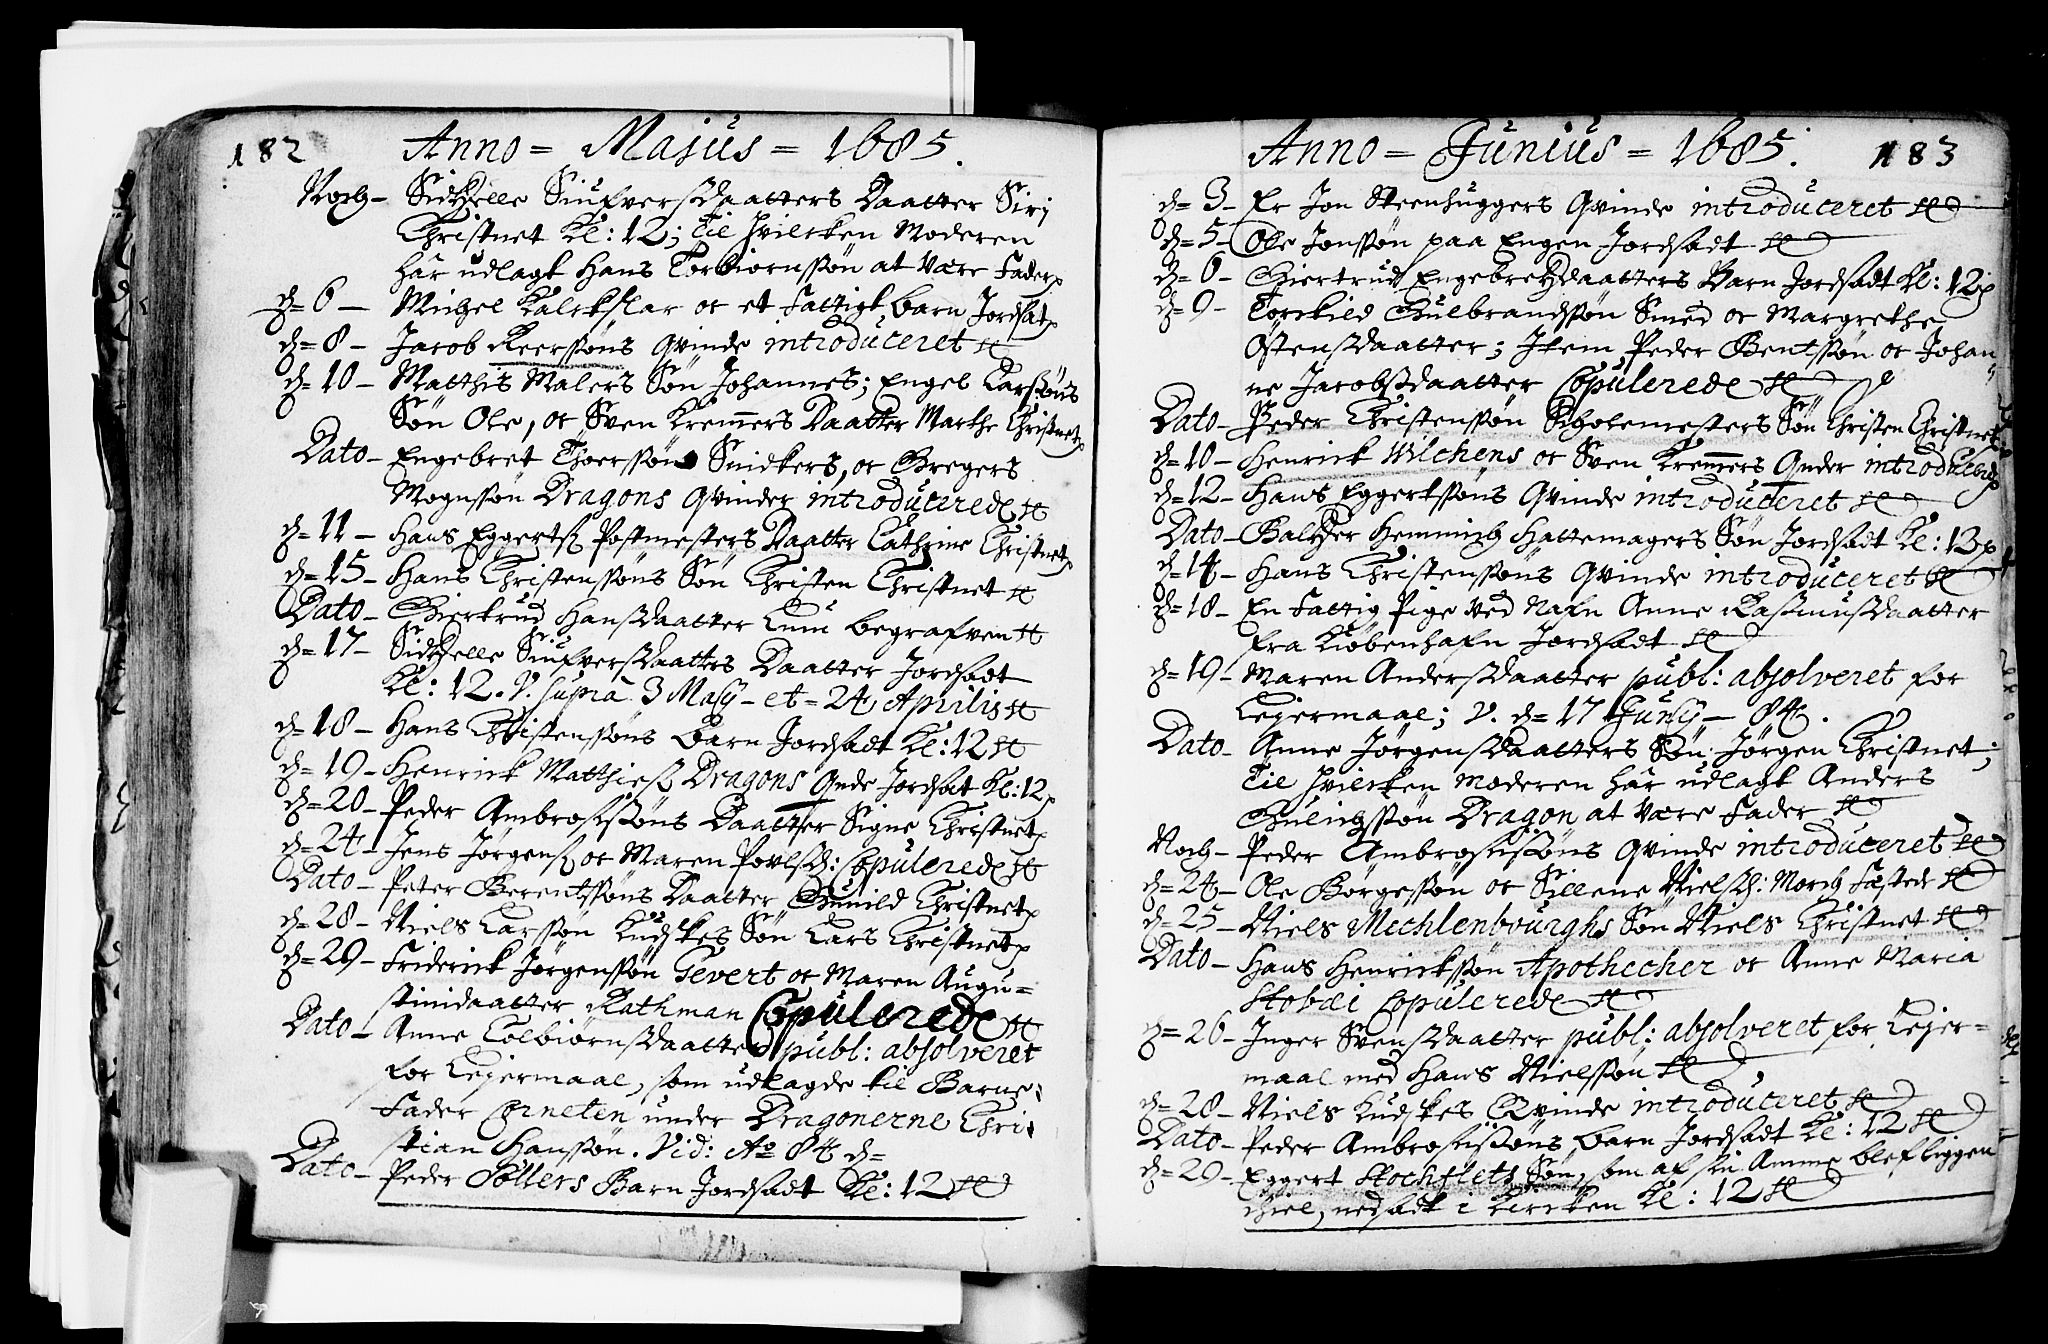 182 Anno = Majus = 1685.
Noch - Sidtzelle Siufversdaatters Daatter Siri
Christnet Kl: 12; Til hvilcken Moderen
har udlagt Hans Torbiørnssøn at være Fader
d= 6 - Michel Kalckslar oc et fattigt barn Jordsat
d= 8 - Jacob Reerssøns Qvinde introduceret
d= 10 - Matthis Malers Søn Johannes; Engel Larssøns
Søn Ole, oc Sven Kremmers Daatter Marthe Christnet
Dato - Engebret Thoerssøn Snidkers, oc Gregers
Mognssøn Dragons Qvinder introducerede
d= 11 - Hans Eggerts Postmesters Daatter Cathrine Christnet
d= 15 - Hans Christenssøns Søn Christen Christnet
Dato - Giertrud Hansdaatter Lum begrafven
d= 17 - Sidtzelle Siufversdaatters Daatter Jordsadt
Kl: 12. V. supra 3 Maji - et = 24 Aprilis
d= 18 - Hans Christenssøns barn Jordsadt Kl: 12
d= 19 - Henrick Matthies Dragons Qnde Jordsat Kl: 12
d= 20 - Peder Ambrosissøns Daatter Signe Christnet
d= 24 - Jens Jørgens oc Maren Povlsd: Copulerede
Dato - Peter Berentssøns Daatter Gunild Christnet
d= 28 - Niels Larssøn Kudskes Søn Lars Christnet
d= 29 - Friderick Jørgenssøn Gevert oc Maren Augu=
stinidaatter Rathman Copulerede
Dato - Anne Tolbiørnsdaatter publ: absolveret
for Lejermaal, som udlagde til Barne=
Fader Corneten under Dragonerne Chri=
stian Hanssøn. Vid: Ao 84 d=
Dato - Peder Sollers Barn Jordsadt Kl: 12
Anno = Junius = 1685. 183
d= 3 - Er Jon Steenhuggers Qvinde introduceret
d= 5 - Ole Jonssøn paa Engen Jordsadt
d= 6 - Giertrud Engebretzdaatters Barn Jordsadt Kl: 12
d= 9 - Torckild Gulbrandssøn Smed oc Margrethe
Østensdaatter; Item Peder Bentssøn oc Johan=
ne Jacobsdaatter Copulerede
Dato - Peder Christenssøn Scholemesters Søn Christen Christnet
d= 10 - Henrick Wilchens oc Sven Kremmers Qnder introducerede
d= 12 - Hans Eggertssøns Qvinde introduceret
Dato - Baltzer Hemmich Hattemagers Søn Jordsadt Kl: 13
d= 14 - Hans Christenssøns Qvinde introduceret
d= 18 - En fattig Pige ved Nafn Anne Rasmusdaatter
fra Kiøbenhafn Jordsadt
d= 19 - Maren Andersdaatter publ: absolveret for
Lejermaal; V. d= 17 Junij - 84.
Dato - Anne Jørgensdaatters Søn Jørgen Christnet;
Til hvilcken Moderen har udlagt Anders
Gulichssøn Dragon at være Fader
Noch - Peder Ambrosissøns Qvinde introduceret
d= 24 - Ole Børgessøn oc Sillene Nielsd: Morch Fæstede
d= 25 - Niels Mechlenbourghs Søn Niels Christnet
Dato - Hans Henrickssøn Apothecher oc Anne Maria
Stobæi Copulerede
d= 26 - Inger Svensdaatter publ: absolveret for Lejer=
maal med Hans Nielssøn
d= 28 - Niels Kudskes Qvinde introduceret
Dato - Peder Ambrosissøns barn Jordsadt Kl: 12
d= 29 - Eggert Stochflets Søn, som af sin Amme blef liggen
ihiel, nedsadt i Kircken Kl: 12